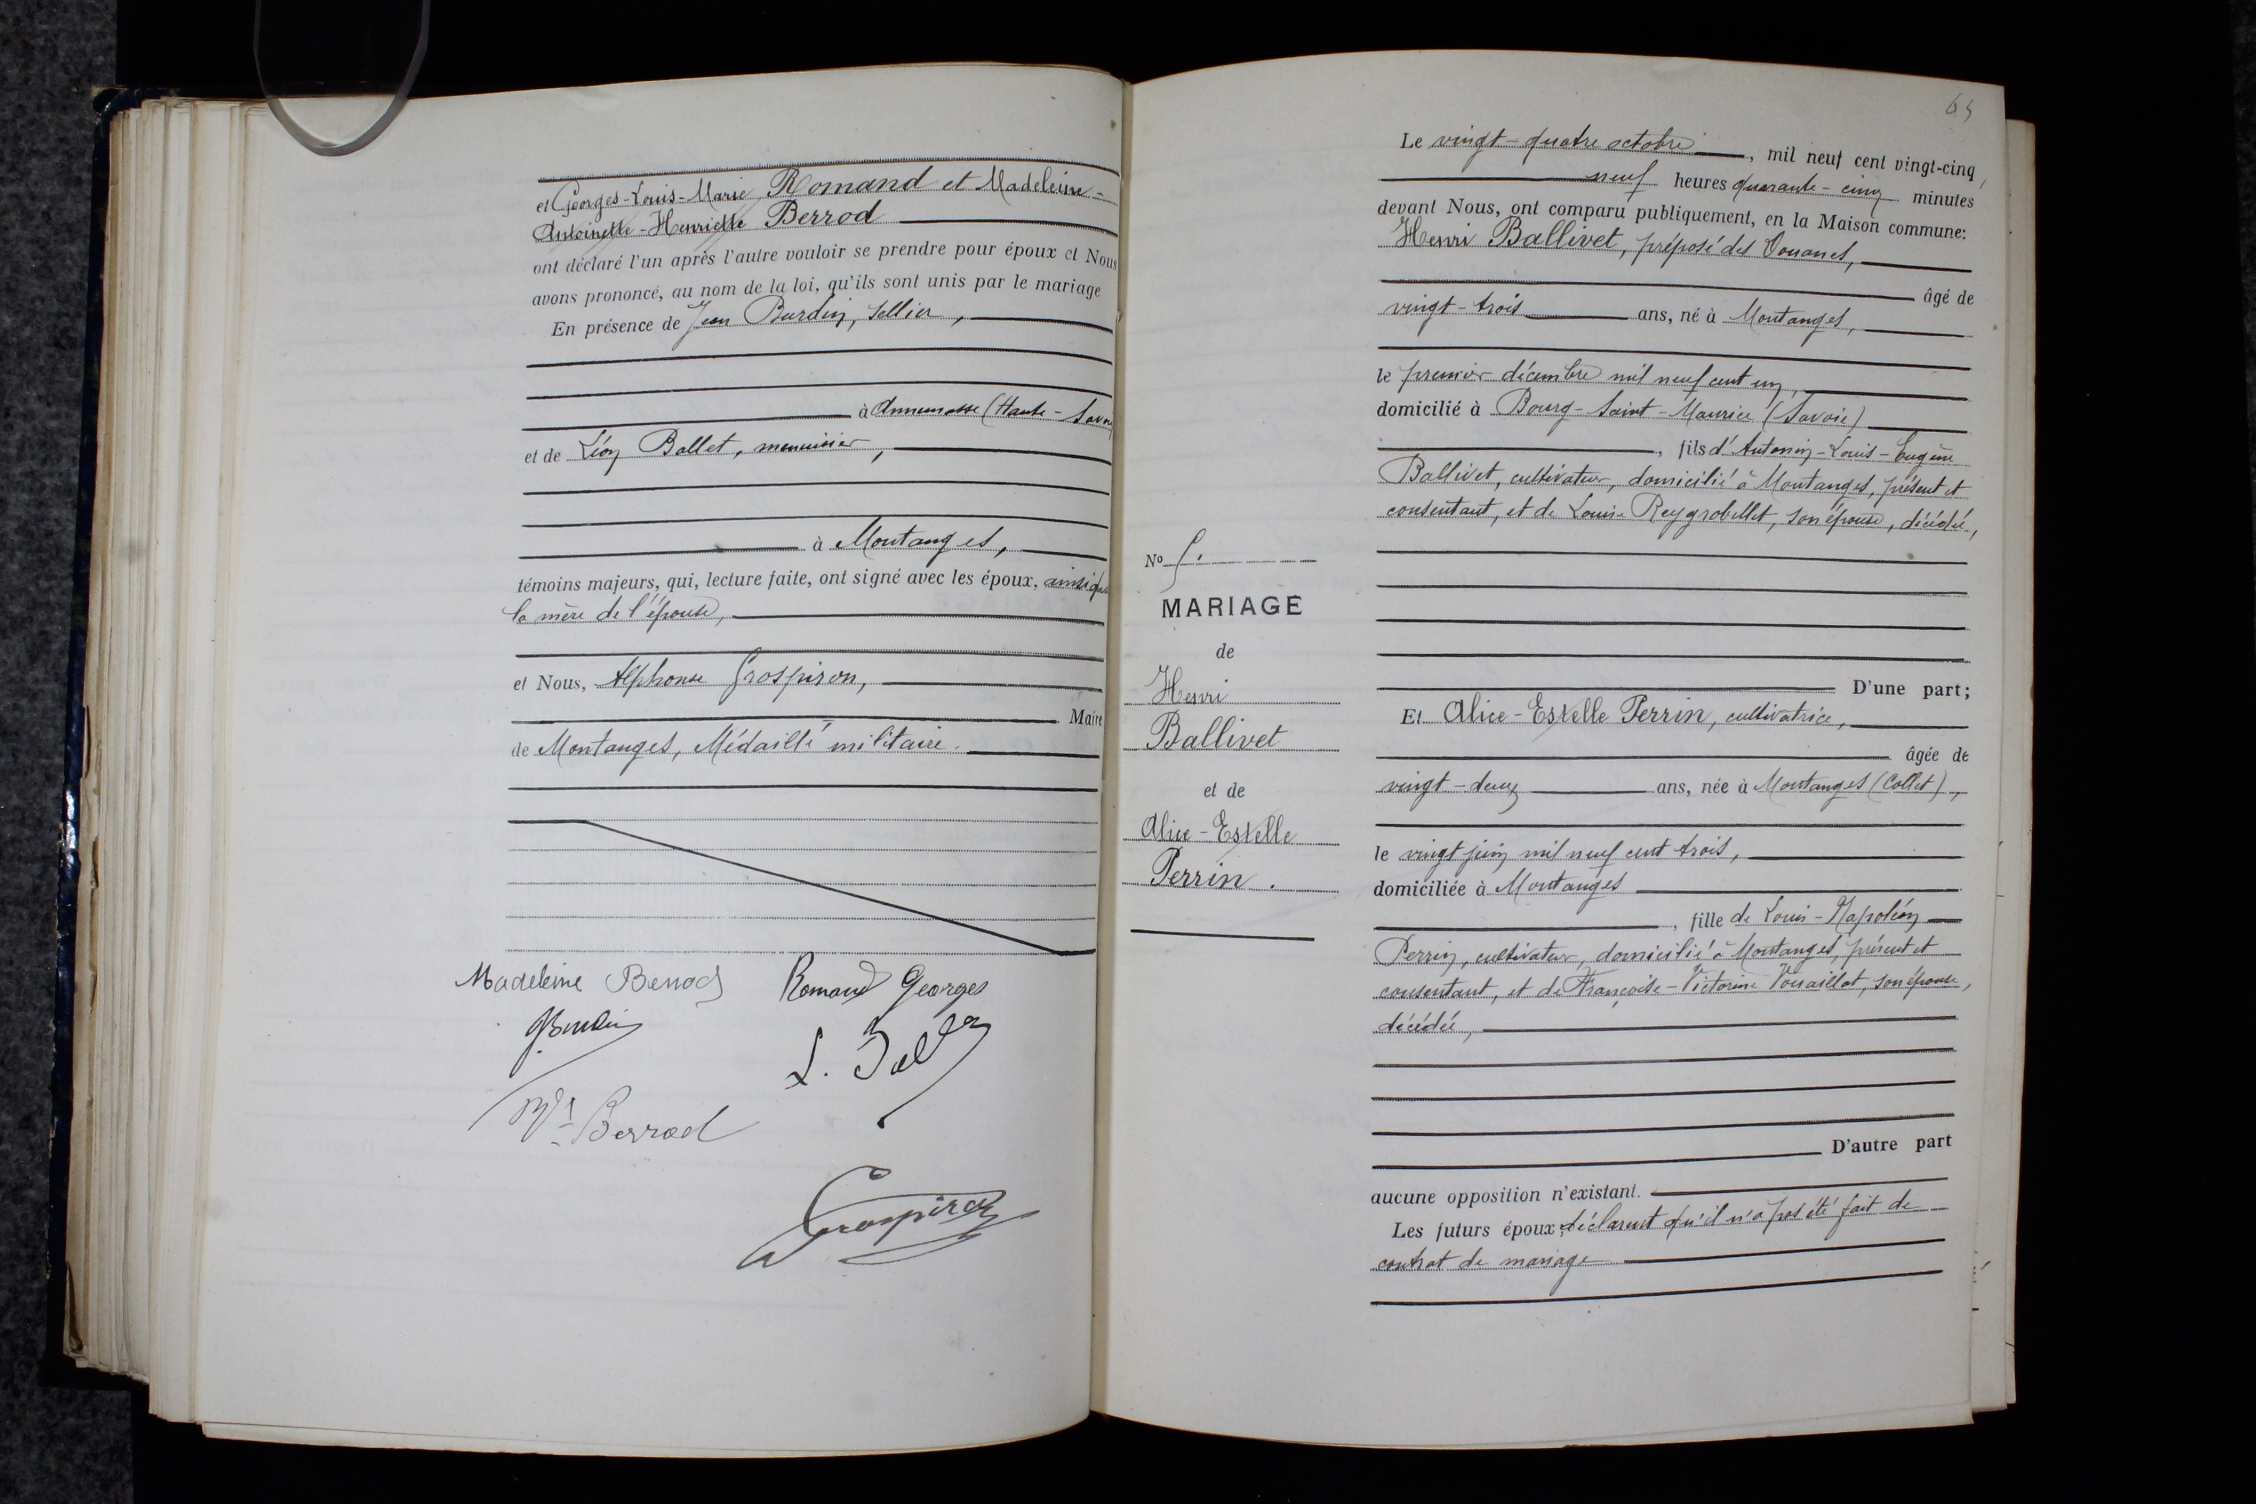 et Georges-Louis-Marie Romand et Madeleine-
Antoinette-Henriette Berrod
ont déclaré l'un après l'autre vouloir se prendre pour époux et Nous
avons prononcé, au nom de la loi, qu'ils sont unis par le mariage
En présence de Jean Burdin, sellier,
à Annemasse (Haute-Savoie
et de Léon Ballet, menuisier,
à Montanges,
témoins majeurs, qui, lecture faite, ont signé avec les époux, ainsi que
la mère de l'épouse,
et Nous, Alphonse Grospiron,
Maire
de Montanges, Médaillé militaire.
Madeleine Berrod Romand Georges
JBurdin
L. Ballet
Berrod
Grospiron
65
Le vingt-quatre octobre, mil neuf cent vingt-cinq,
neuf heures quarante-cinq minutes
devant Nous, ont comparu publiquement, en la Maison commune:
Henri Ballivet, préposé des Douanes,
âgé de
vingt-trois ans, né à Montanges,
le premier décembre mil neuf cent un,
domicilié à Bourg-Saint-Maurice (Savoie)
, fils d'Antonin-Louis-Eugène
Ballivet, cultivateur, domicilié à Montanges, présent et
consentant, et de Louise Reygrobellet, son épouse, décédée,
D'une part;
Et Alice-Estelle Perrin, cultivatrice,
âgée de
vingt-deux ans, née à Montanges (Collet),
le vingt juin mil neuf cent trois,
domiciliée à Montanges
, fille de Louis-Napoléon
Perrin, cultivateur, domicilié à Montanges, présent et
consentant, et de Françoise-Victorine Vouaillat, son épouse,
décédée,
D'autre part
aucune opposition n'existant.
Les futurs époux déclarent qu'il n'a pas été fait de
contrat de mariage
No 5.
MARIAGE
de
Henri
Ballivet
et de
Alice-Estelle
Perrin.